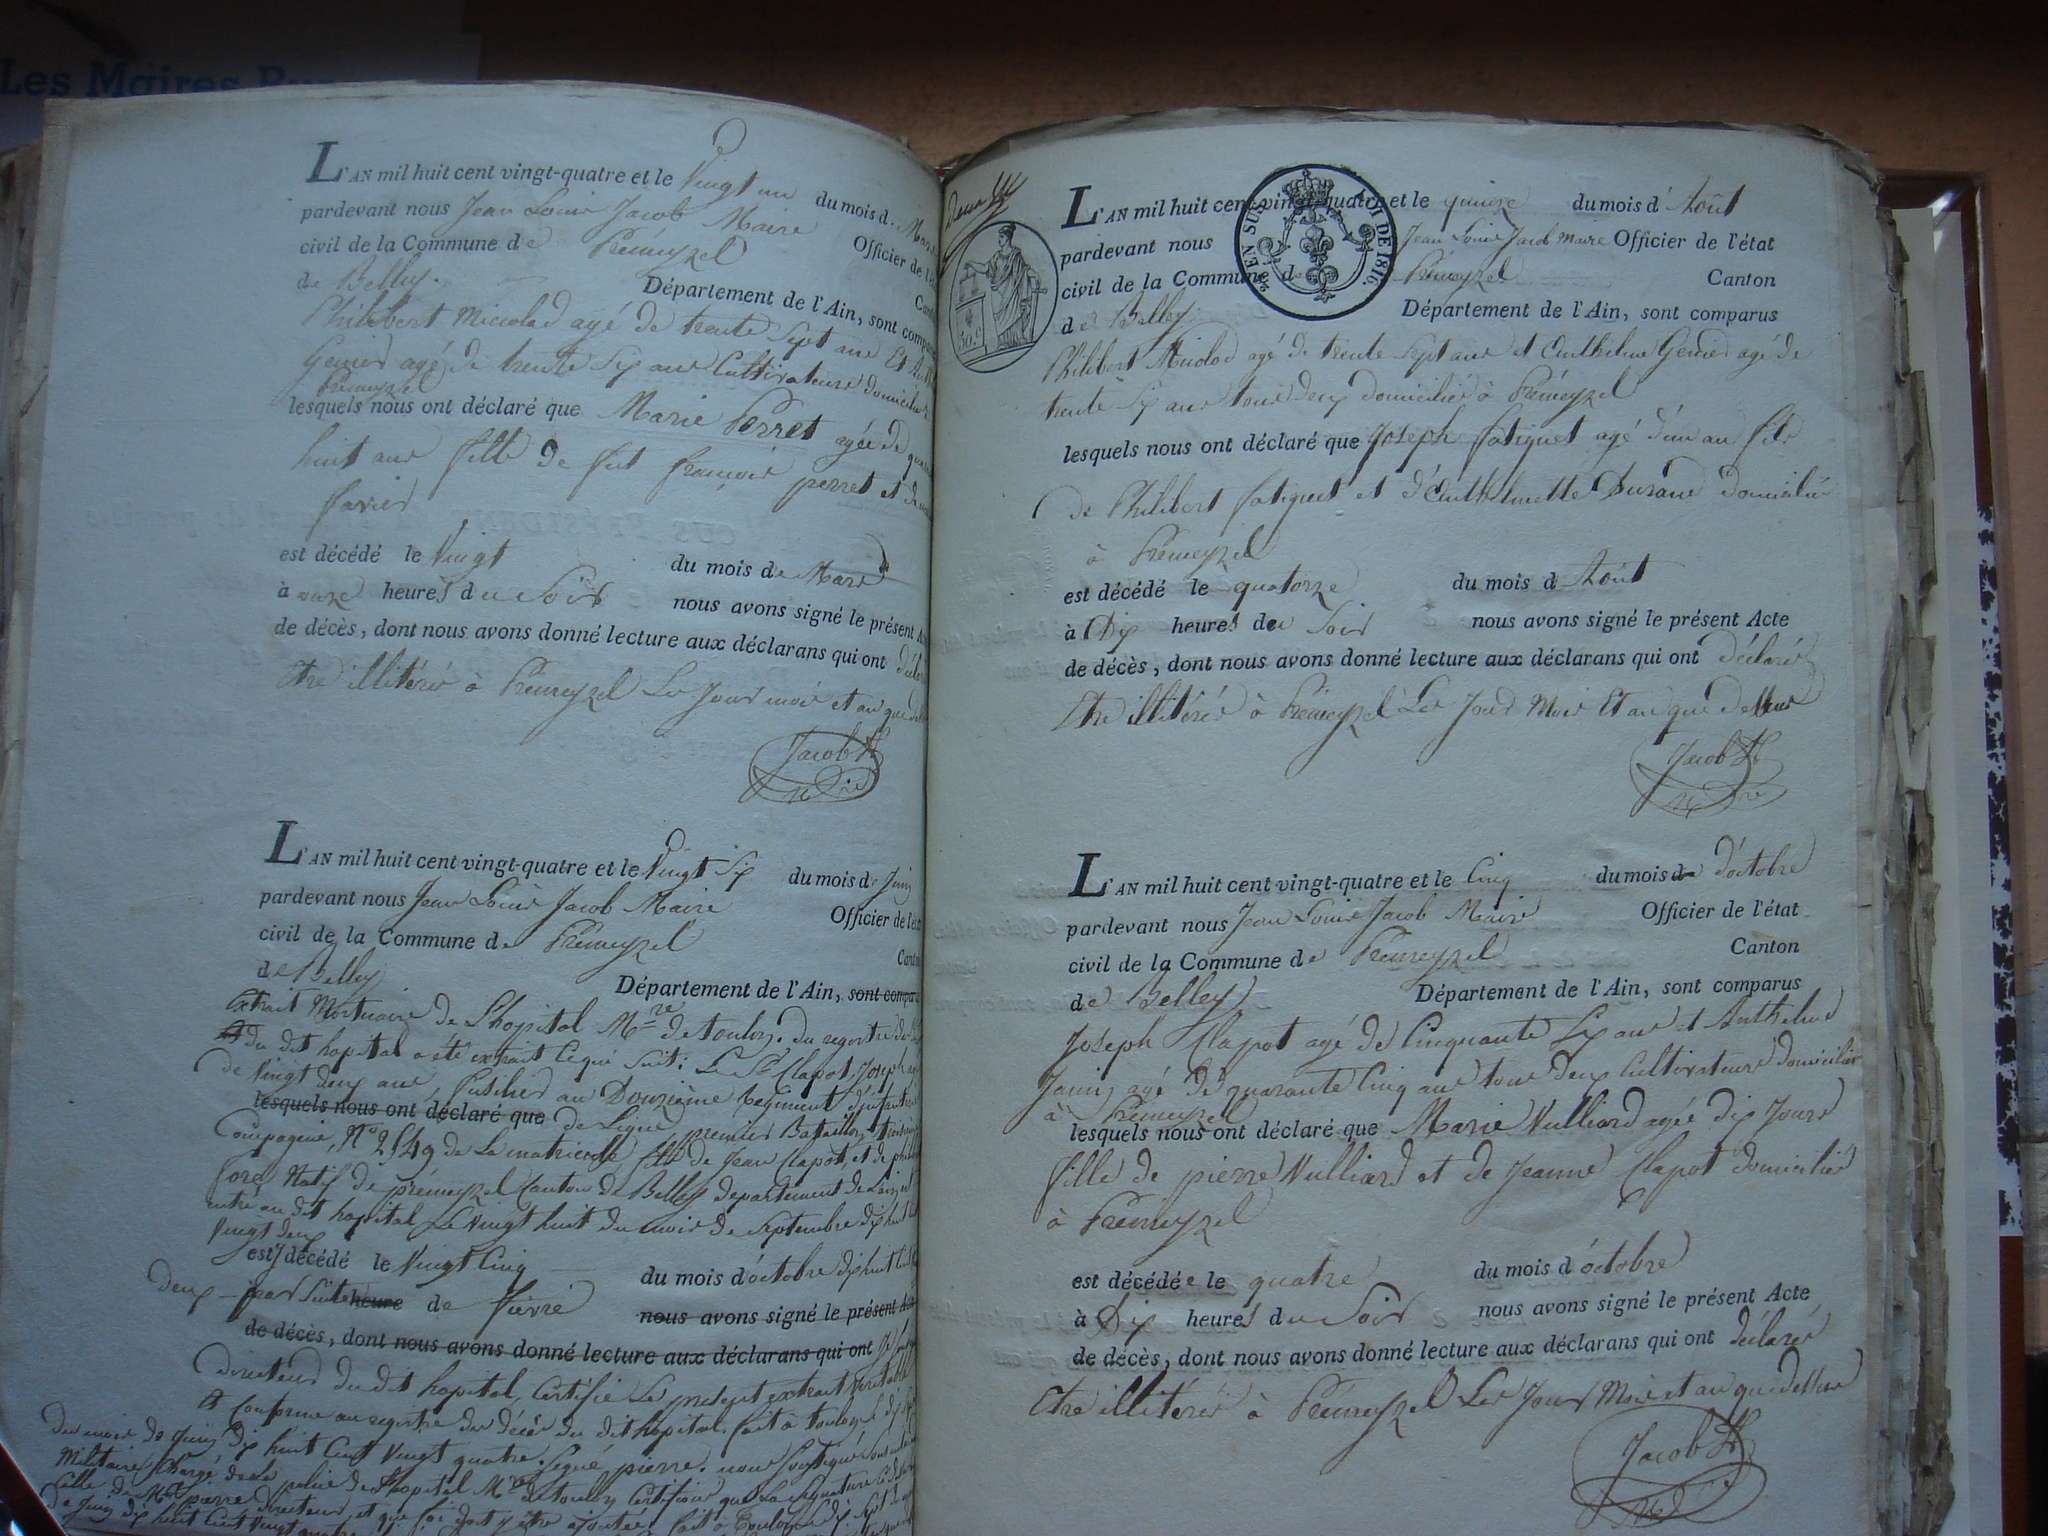 Les Maires
L'AN mil huit cent vingt-quatre et le Vingt un du mois de Mars
pardevant nous Jean Louis Jacob Maire Officier de l'
civil de la Commune de Prémeyzel
de Belley. Département de l'Ain, sont
Philibert Miciolad agé de trente Sept ans Et
Genier agé de trente Six ans Cultivateurs domiciliés
Prémeyzel
lesquels nous ont déclaré que Marie Perret agée de
huit ans fille de fut françois perret et
favier
est décédé le Vingt du mois de Mars
à onze heures du Soir nous avons signé le présent
de décès, dont nous avons donné lecture aux déclarans qui ont
Etre illitérés à Prémeyzel Les Jour mois et an que
Jacob
L'AN mil huit cent vingt-quatre et le Vingt Six du mois de Juin
pardevant nous Jean Louis Jacob Maire Officier de l'état
civil de la Commune de Prémeyzel
de Belley Département de l'Ain, sont
Extrait Mortuaire de L'hopital Mre de toulon. du registre
du dit hopital a été extrait Ce qui Suit: Le Sr Clapot Joseph
de Vingt deux ans, fusilier au Douzième Régiment
lesquels nous ont déclaré que de Ligne premier Bataillon
Compagnie, No 2549 de La matricule, fils de Jean Clapot, et de
Natif de prémeyzel Canton de Belley departement de Lain
entré au dit hopital Le Vingt huit du mois de Septembre dix huit
Vingt deux
est y décédé le Vingt Cinq du mois d'octobre dix huit
deux heure de fièvre nous avons signé le présent Acte
de décès, dont nous avons donné lecture aux déclarans qui ont
directeur du dit hopital, Certifie Le présent extrait Véritable
et Conforme au registre des décès du dit hopital. fait à toulon
du mois de Juin dix huit Cent Vingt quatre. Signé pierre. nous
Militaire Chargé de la police de L'hopital Mre de toulon Certifions que La Signature
celle de Mr pierre directeur, et que foi doit y être ajoutée. fait à Toulon
de Juin dix huit Cent Vingt
L'AN mil huit cent vingt-quatre et le quinze du mois d'Août
pardevant nous Jean Louis Jacob Maire Officier de l'état
civil de la Commune de Prémeyzel Canton
de Belley Département de l'Ain, sont comparus
Philibert Miciolod agé de trente Sept ans et Anthelme Genier agé de
trente Six ans tous deux domiciliés à Prémeyzel
lesquels nous ont déclaré que Joseph fatiguet agé d'un an fils
de Philibert fatiguet et d'Anthelmette Durand domiciliés
à Prémeyzel
est décédé le quatorze du mois d'Août
à Dix heures du Soir nous avons signé le présent Acte
de décès, dont nous avons donné lecture aux déclarans qui ont déclarés
Etre illitérés à Prémeyzel Les Jour Mois Et an que dessus
Jacob
L'AN mil huit cent vingt-quatre et le Cinq du mois d'octobre
pardevant nous Jean Louis Jacob Maire Officier de l'état
civil de la Commune de Prémeyzel Canton
de Belley Département de l'Ain, sont comparus
Joseph Clapot agé de Cinquante Six ans et Anthelme
Janin agé de quarante Cinq ans tous deux Cultivateurs domiciliés
à Prémeyzel
lesquels nous ont déclaré que Marie Vulliard agée dix Jours
fille de pierre Vulliard et de Jeanne Clapot domiciliés
à Prémeyzel
est décédée le quatre du mois d'octobre
à Dix heures du Soir nous avons signé le présent Acte
de décès, dont nous avons donné lecture aux déclarans qui ont déclarés
Etre illitérés à Prémeyzel Les Jour Mois et an que dessus
Jacob